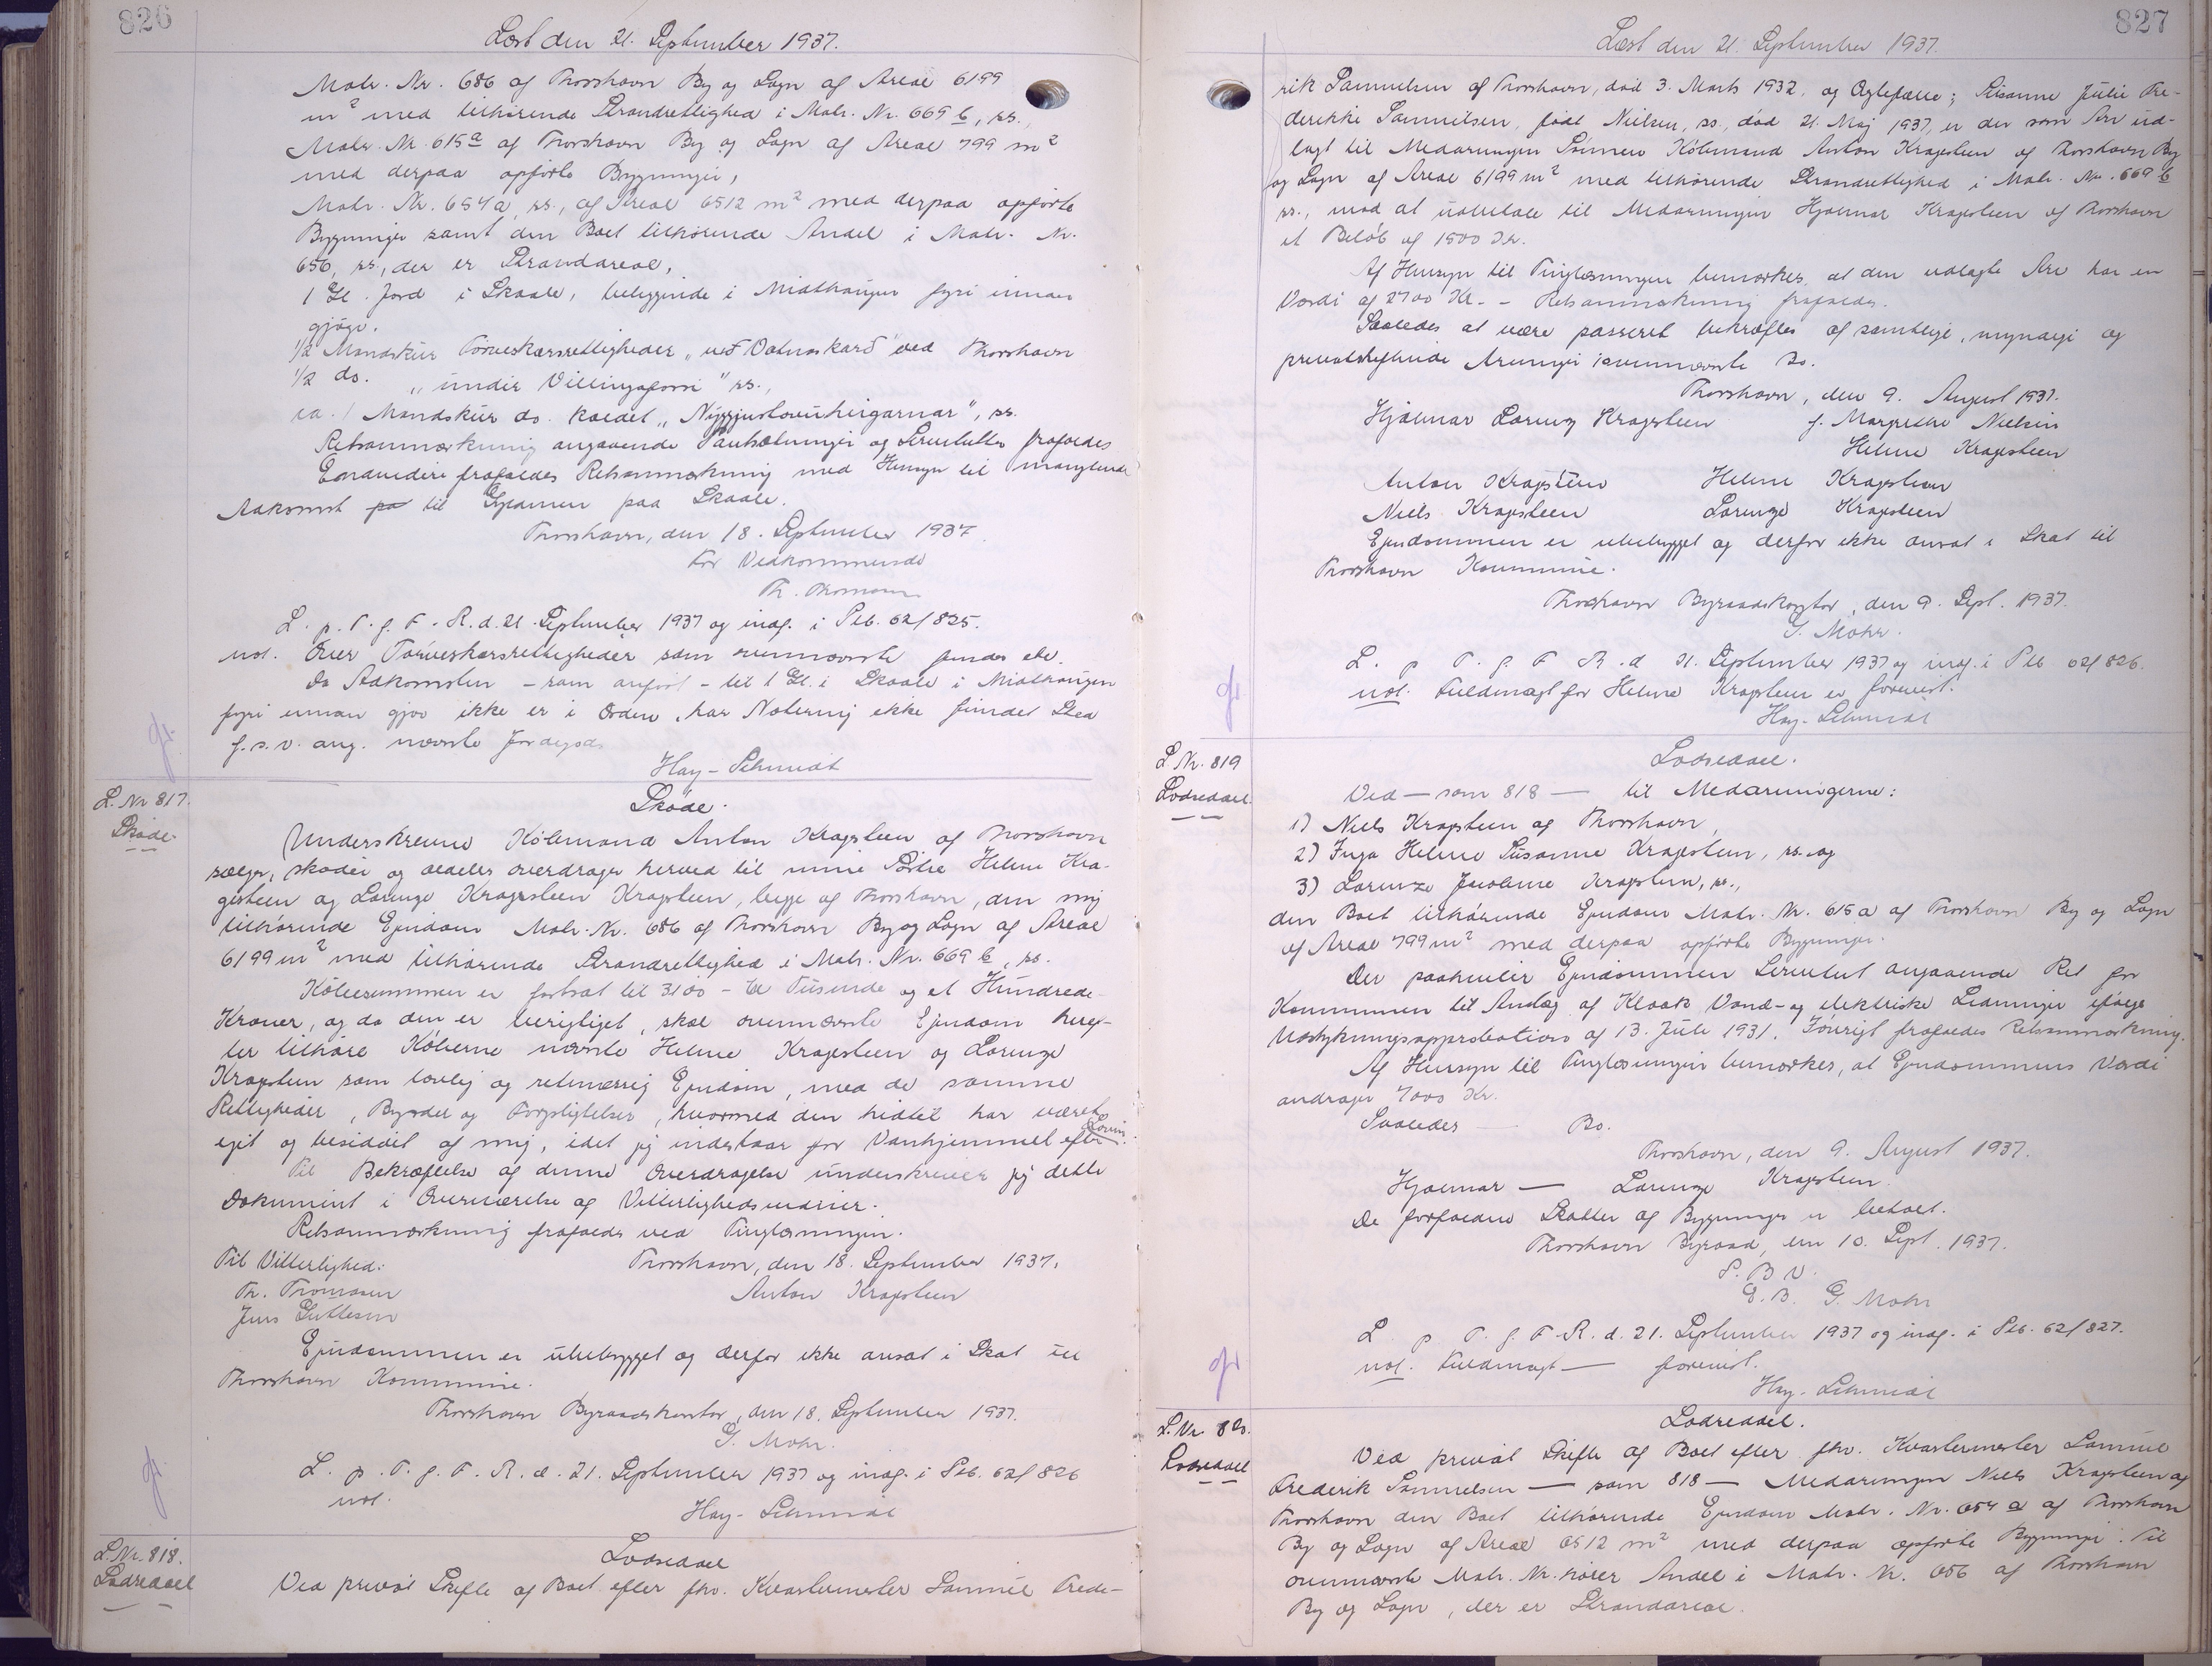 826
Læst den 21. September 1937.
Matr. Nr. 686 af Thorshavn By og Sogn af Areal 6199
m² med tilhørende Strandrettighed i Matr. Nr. 669 b, ss.,
Matr. Nr. 615 a af Thorshavn By og Sogn af Areal 799 m²
med derpaa opførte Bygninger,
Matr. Nr. 654 a, ss., af Areal 6512 m² med derpaa opførte
Bygninger samt den Boet tilhørende Andel i Matr. Nr.
656, ss., der er Strandareal,
1 Gl. Jord i Skaale, beliggende i Miðhaugen fyri innan
gjógv.
1/2 Mandskur Tørveskærsrettigheder "við Vatnsskarð" ved Thorshavn
1/2 do. "undir Villingafossi" ss.,
ca. 1 Mandskur do. kaldet ss.
Retsanmærkning angaaende Panthæftelser og Servitutter frafaldes
Endvidere frafaldes Retsanmærkning med Hensyn til manglende
Adkomst pa til Ejdommen paa Skaale.
Thorshavn, den 18. September 1937.
For Vedkommende
Th. Thomsen
L. p. T. f. F. R. d. 21. September 1937 og indf. i Ptb. 62/825.
not. Over Tørveskærsrettigheder som ovennævnte findes
Da Adkomsten - som anført - til 1 Gl. i Skaale i Miðhaugen
fyri innan gjov ikke er i Orden, har Notering ikke fundet Sted
f. s. v. ang. nævnte Jordegods
Hay-Schmidt
L. Nr 817.
Skøde.
Skøde.
Underskrevne Købmand Anton Kragesteen af Thorshavn
sælger, skøder og aldeles overdrager herved til mine Søstre Helene Kra-
gesteen og Lorenze Kragesteen Kragesteen, begge af Thorshavn, den mig
tilhørende Ejendom Matr. Nr. 686 af Thorshavn By og Sogn af Areal
6199 m² med tilhørende Strandrettighed i Matr. Nr. 669 b, ss.
Købesummen er fastsat til 3100 - tre Tusinde og et Hundrede
Kroner, og da den er berigtiget, skal ovennævnte Ejendom heref-
ter tilhøre Køberne nævnte Helene Kragesteen og Lorenze
Kragesteen som lovlig og retmæssig Ejendom, med de samme
Rettigheder, Byrder og Forpligtelser, hvormed den hidtil har været
ejet og besiddet af mig, idet jeg indestaar for Vanhjemmel efter Loven.
Til Bekræftelse af denne Overdragelse underskriver jeg dette
Dokument i Overværelse af Vitterlighedsvidner.
Retsanmærkning frafaldes ved Tinglæsningen.
Til Vitterlighed:
Thorshavn, den 18. September 1937.
Th. Thomsen
Anton Kragesteen
Jens Guttesen
Ejendommen er ubebygget og derfor ikke ansat i Skat til
Thorshavn Kommune.
Thorshavn Byraadskontor, den 18. September 1937.
G. Mohr.
L. p. T. f. F. R. d. 21. September 1937 og indf. i Ptb. 62/826
not.
Hay-Schmidt
L. Nr. 818.
Lodseddel
Lodseddel
Ved privat Skifte af Boet efter fhv. Kvartermester Samuel Frede-
827
Læst den 21. September 1937.
rik Samuelsen af Thorshavn, død 3. Marts 1932, og Ægtefælle; Susanne Julie Fre-
derikke Samuelsen, født Nielsen, ss., død 21. Maj 1937, er der som Arv ud-
lagt til Medarvingen Købmand Anton Kragesteen af Thorshavn By
og Sogn af Areal 6199 m² med tilhørende Strandrettighed i Matr. Nr. 669 b
ss., mod at udbetale til Medarvingen Hjalmar Kragesteen af Thorshavn
et Beløb af 1500 Kr.
Af Hensyn til Tinglæsningen bemærkes, at den udlagte Arv har en
Værdi af 2700 Kr. - Retsanmærkning frafaldes.
Saaledes at være passeret bekræftes af samtlige, myndige og
privatskiftende Arvinger i ovennævnte Bo.
Thorshavn, den 9. August 1937.
Hjalmar Lorenz Kragesteen
f. Margrethe Nielsen
Helene Kragesteen
Anton Kragesteen
Helene Kragesteen
Niels Kragesteen
Lorenze Kragesteen
Ejendommen er ubebygget og derfor ikke ansat i Skat til
Thorshavn Kommune.
Thorshavn Byraadskontor, den 9. Sept. 1937.
G. Mohr.
L. p T. f. F R. d 21. September 1937 og indf. i Ptb 62/826.
not. Fuldmagt for Helene Kragesteen er forevist.
Hay-Schmidt
L Nr. 819
Lodseddel.
Lodseddel.
Ved — som 818 — til Medarvingerne:
1) Niels Kragesteen af Thorshavn,
2) Inga Helene Susanne Kragesteen, ss. og
3) Lorenze Jacobine Kragesteen, ss.,
den Boet tilhørende Ejendom Matr. Nr. 615 a af Thorshavn By og Sogn
af Areal 799 m² med derpaa opførte Bygninger.
Der paahviler Ejendommen Servitut angaaende Ret for
Kommunen til Anlæg af Kloak Vand- og elektriske Ledninger ifølge
Udstykningsapprobation af 13. Juli 1931. Iøvrigt frafaldes Retsanmærkning.
Af Hensyn til Tinglæsningen bemærkes, at Ejendommens Værdi
andrager 7000 Kr.
Saaledes — Bo.
Thorshavn, den 9. August 1937.
Hjalmar — Lorenze Kragesteen.
De forfaldne Skatter af Bygninger er betalt.
Thorshavn Byraad, den 10. Sept. 1937.
P. B. V.
E. B. G. Mohr
L p T. f. F. R. d. 21. September 1937 og indf. i Ptb. 62/827.
not. Fuldmagt — forevist.
Hay-Schmidt
L. Nr. 820.
Lodseddel
Lodseddel.
Ved privat Skifte af Boet efter fhv. Kvartermester Samuel
Frederik Samuelsen — som 818 — Medarvingen Niels Kragesteen af
Thorshavn den Boet tilhørende Ejendom Matr. Nr. 654 a af Thorshavn
By og Sogn af Areal 6512 m² med derpaa opførte Bygninger. Til
ovennævnte Matr. Nr. hører Andel i Matr. Nr. 656 af Thorshavn
By og Sogn, der er Strandareal.